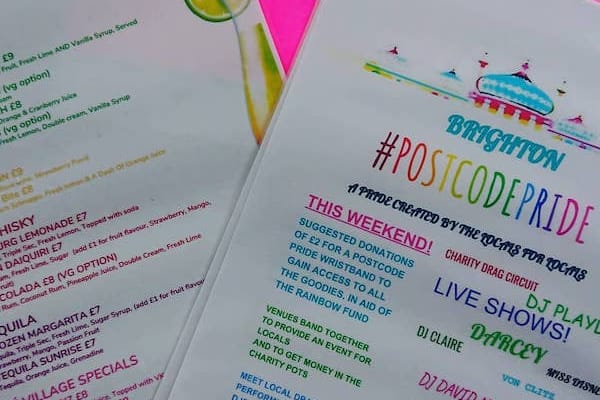 £9
Fruit, Fresh Lime AND Vanilla Syrup, Served
(vg option)
Cream
H £8
Orange & Cranberry Juice
(vg option)
Fresh Lemon, Double cream, Vanilla Syrup
£9
£8
& A Dash Of Orange Juice
HISKY
URG LEMONADE £7
Triple Sec, Fresh Lemon, Topped with soda
N DAIQUIRI £7
Fresh Lime, Sugar (add £1 for fruit flavour, Strawberry, Mango,
COLADA £8 (VG OPTION)
Rum, Coconut Rum, Pineapple Juice, Double Cream, Fresh Lime
EQUILA
OZEN MARGARITA £7
quila, Triple Sec, Fresh Lime, Sugar Syrup, (add £1 for fruit flavour,
trawberry, Mango, Passion Fruit
EQUILA SUNRISE £7
Tequila, Orange Juice, Grenadine
VILLAGE SPECIALS
BRIGHTON
#POSTCODEPRIDE
A PRIDE CREATED BY THE LOCALS FOR LOCALS
THIS WEEKEND!
SUGGESTED DONATIONS
OF £2 FOR A POSTCODE
PRIDE WRISTBAND TO
GAIN ACCESS TO ALL
THE GOODIES, IN AID OF
THE RAINBOW FUND
VENUES BAND TOGETHER
TO PROVIDE AN EVENT FOR
LOCALS
AND TO GET MONEY IN THE
CHARITY POTS
MEET LOCAL DRA
PERFORM
CHARITY DRAG CIRCUIT
DJ PLAYL
LIVE SHOWS!
DJ CLAIRE
DARCEY
MISS
VON CLITZ
DJ DAVID